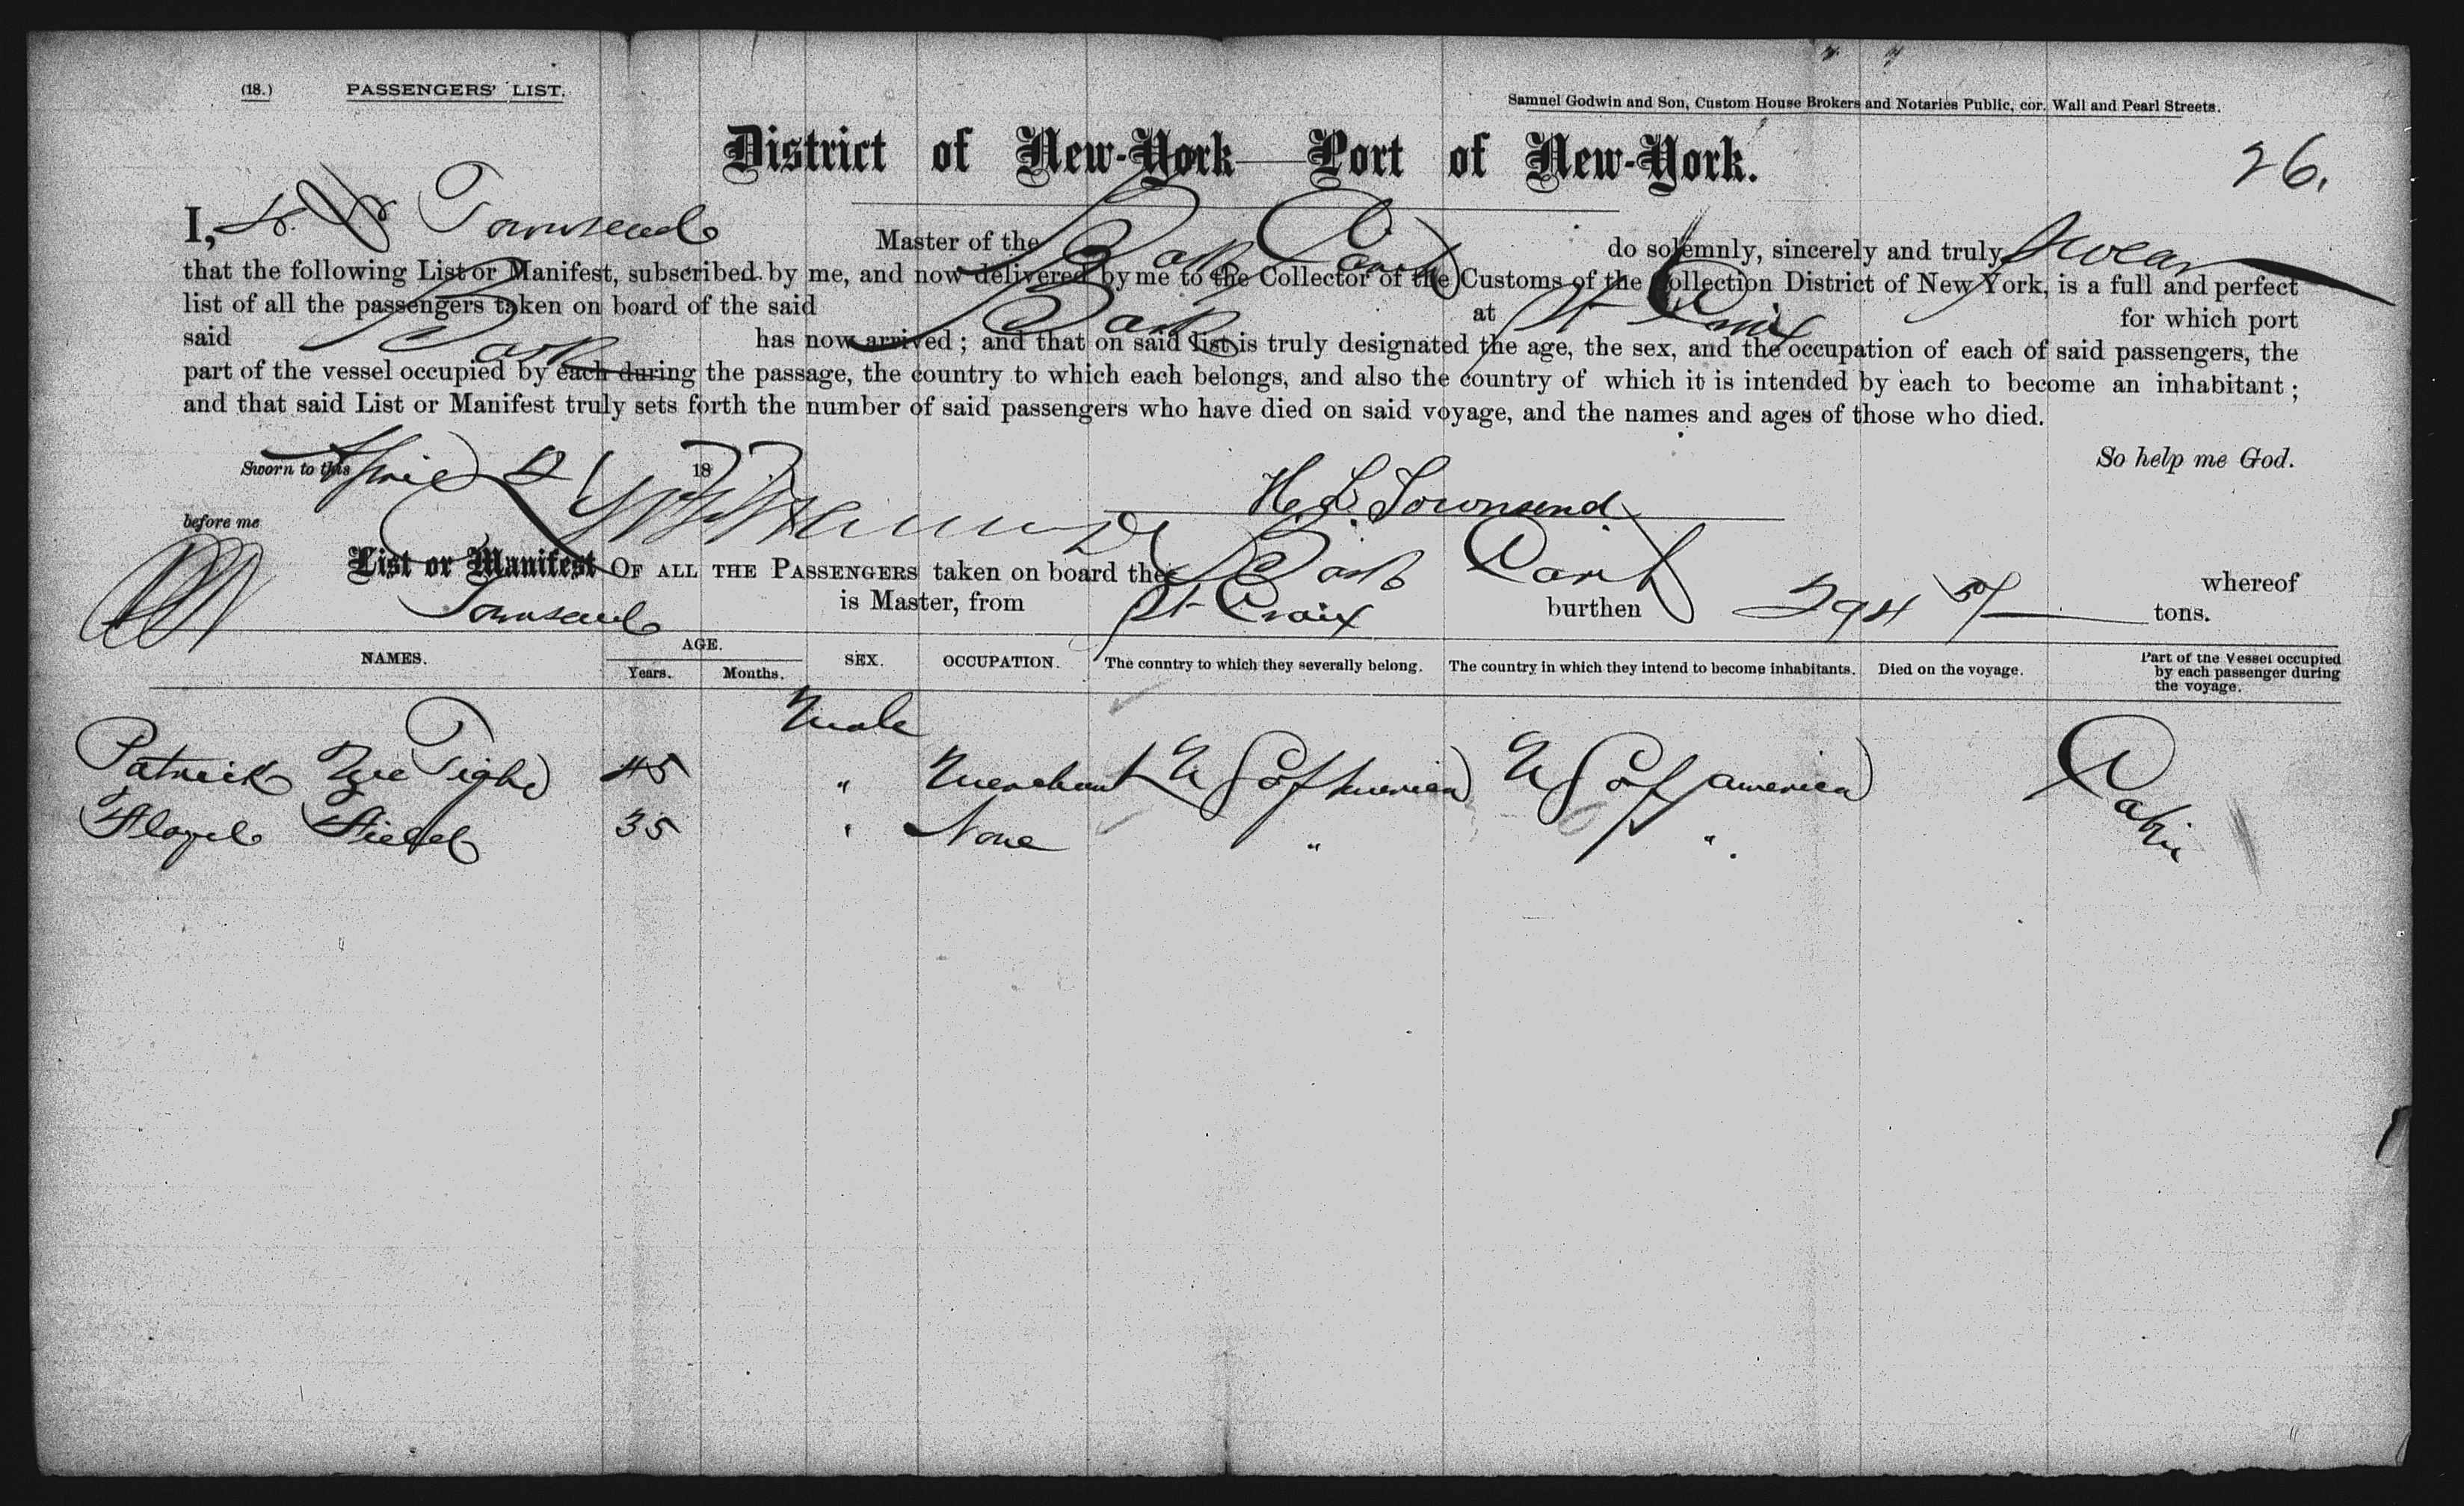 (18.) PASSENGERS' LIST.
Samuel Godwin and Son, Custom House Brokers and Notaries Public, cor. Wall and Pearl Streets.
District of New-York—Port of New-York.
26.
I, H. L. Townsend Master of the Bark Carib do solemnly, sincerely and truly swear
that the following List or Manifest, subscribed by me, and now delivered by me to the Collector of the Customs of the Collection District of New York, is a full and perfect
list of all the passengers taken on board of the said Bark at St Croix for which port
said Bark has now arrived; and that on said list is truly designated the age, the sex, and the occupation of each of said passengers, the
part of the vessel occupied by each during the passage, the country to which each belongs, and also the country of which it is intended by each to become an inhabitant;
and that said List or Manifest truly sets forth the number of said passengers who have died on said voyage, and the names and ages of those who died.
So help me God.
Sworn to this April 2 1877
H. L. Townsend
before me
List or Manifest OF ALL THE PASSENGERS taken on board the Bark Carib whereof
Townsend is Master, from St Croix burthen 294 50/ tons.
NAMES. AGE. Years. Months. SEX. OCCUPATION. The country to which they severally belong. The country in which they intend to become inhabitants. Died on the voyage. Part of the Vessel occupied by each passenger during the voyage.
Male
Patrick McTighe 45 " Merchant U S of America U S of America Cabin
Floyd 35 " None " "